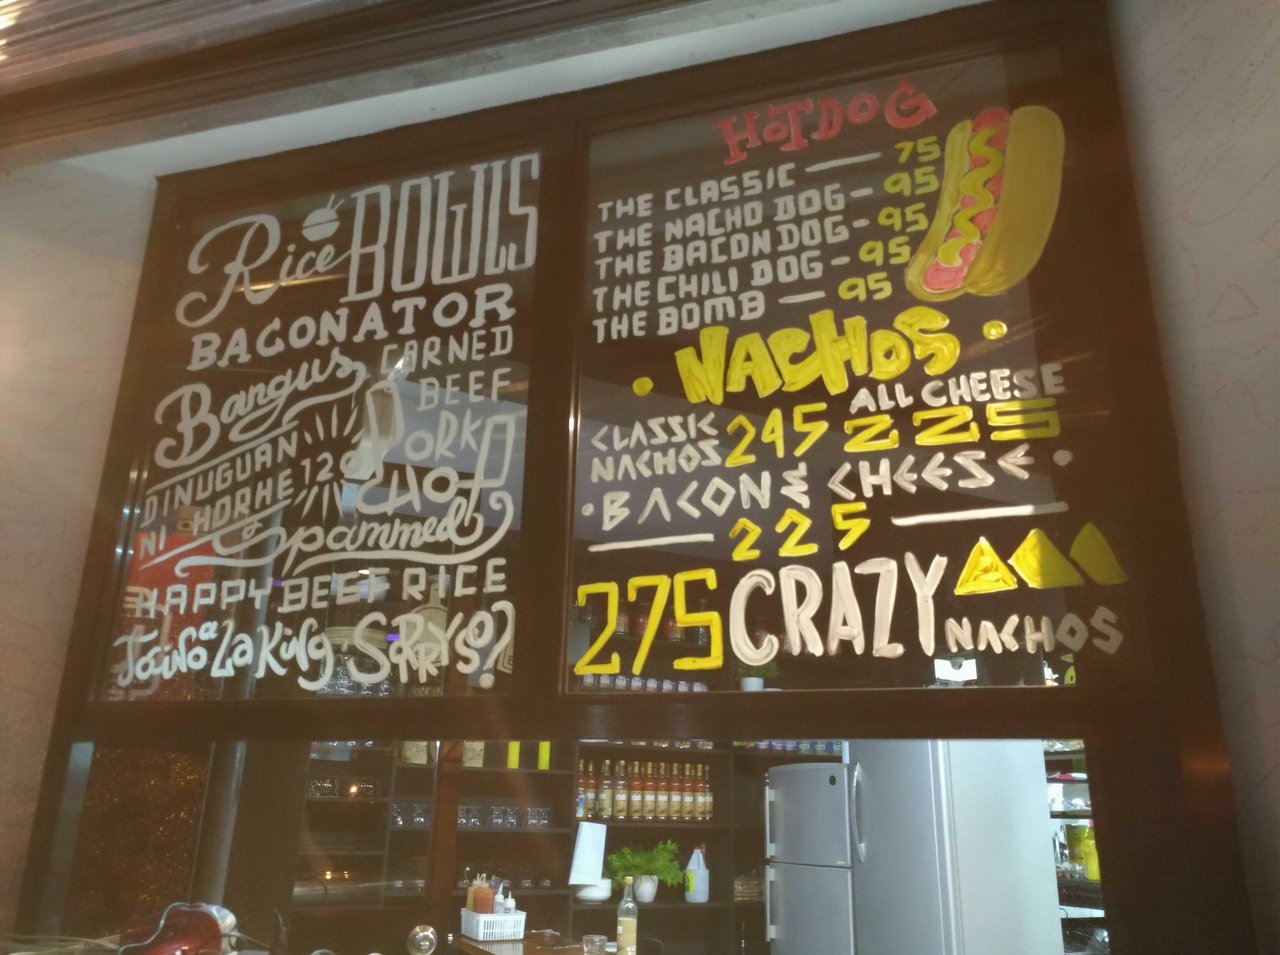 Rice BOWLS
BACONATOR
Bangus CORNED
BEEF
DINUGUAN PORK
NI HORHE 120 CHOP
Spammed
HAPPY BEEF RICE
Tocino a La King SORRYSO?
HOTDOG
THE CLASSIC — 75
THE NACHO DOG - 95
THE BACON DOG - 95
THE CHILI DOG - 95
THE BOMB — 95
NACHOS
CLASSIC NACHOS 245
ALL CHEESE 225
BACON & CHEESE
225
275 CRAZY NACHOS